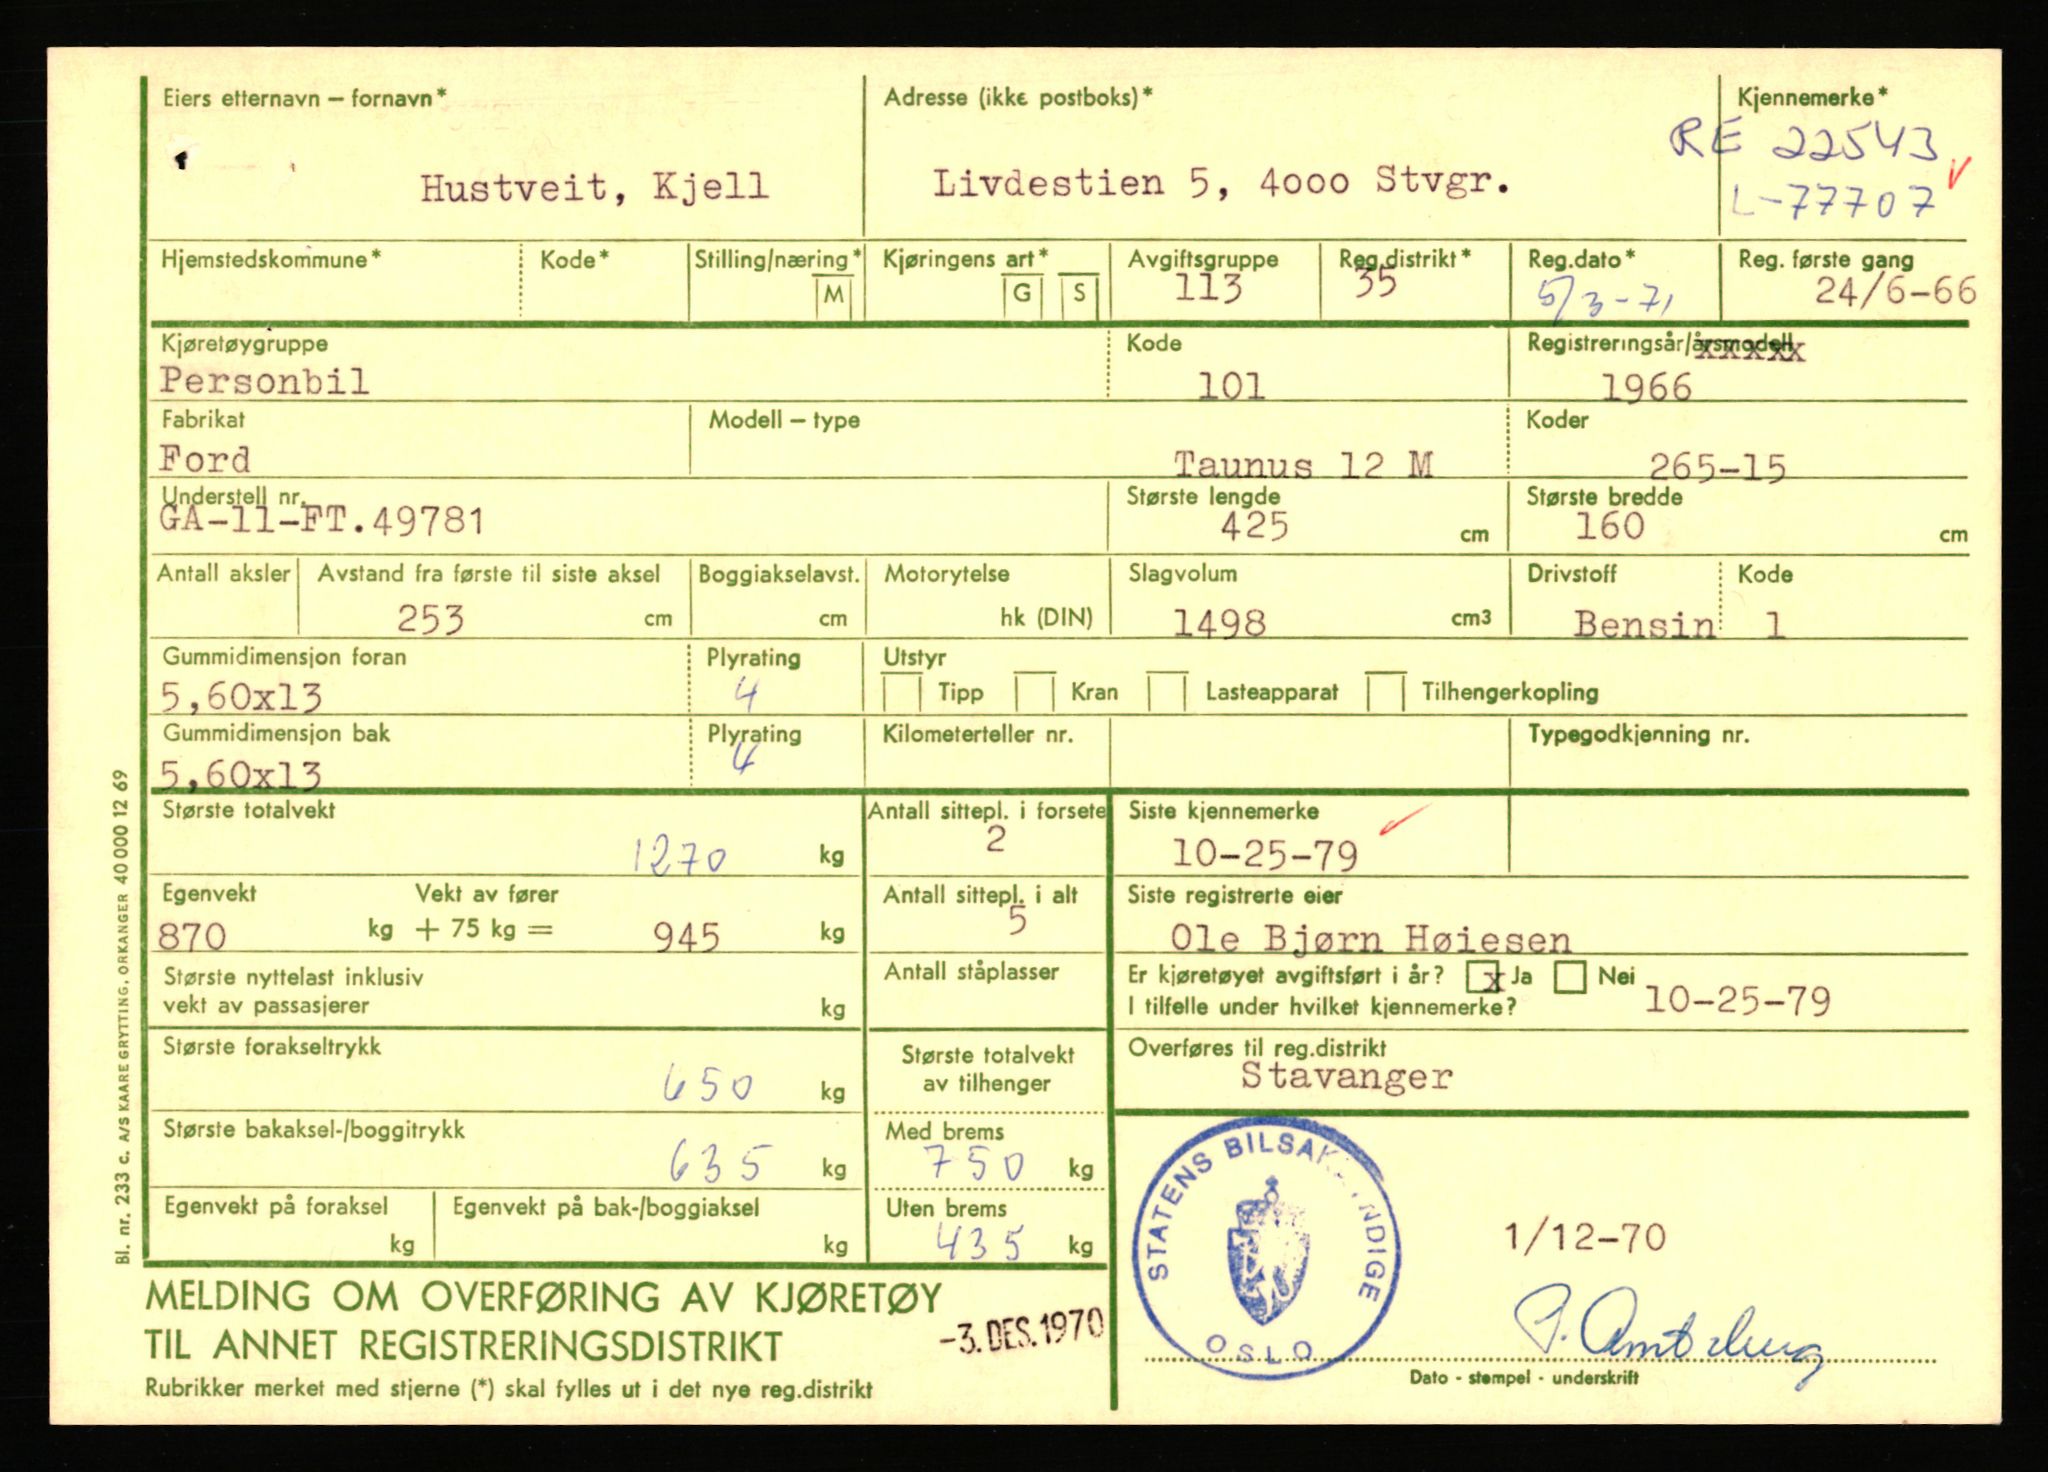 Eiers etternavn – fornavn*
Hustveit, Kjell
Adresse (ikke postboks)*
Livdestien 5, 4000 Stvgr.
Kjennemerke*
RE 22543
L-77707
Hjemstedskommune*
Kode*
Stilling/næring*
M
Kjøringens art*
G S
Avgiftsgruppe
113
Reg.distrikt*
35
Reg.dato*
5/3-71
Reg. første gang
24/6-66
Kjøretøygruppe
Personbil
Kode
101
Registreringsår/årsmodell
1966
Fabrikat
Ford
Modell – type
Taunus 12 M
Koder
265-15
Understell nr.
GA-11-FT.49781
Største lengde
425 cm
Største bredde
160 cm
Antall aksler
Avstand fra første til siste aksel
253 cm
Boggiakselavst.
cm
Motorytelse
hk (DIN)
Slagvolum
1498 cm3
Drivstoff
Bensin
Kode
1
Gummidimensjon foran
5,60x13
Plyrating
4
Utstyr
Tipp Kran Lasteapparat Tilhengerkopling
Gummidimensjon bak
5,60x13
Plyrating
4
Kilometerteller nr.
Typegodkjenning nr.
Største totalvekt
1270 kg
Antall sittepl. i forsete
2
Siste kjennemerke
10-25-79
Egenvekt Vekt av fører
870 kg + 75 kg = 945 kg
Antall sittepl. i alt
5
Siste registrerte eier
Ole Bjørn Høiesen
Største nyttelast inklusiv
vekt av passasjerer kg
Antall ståplasser
Er kjøretøyet avgiftsført i år? x Ja Nei
I tilfelle under hvilket kjennemerke? 10-25-79
Største forakseltrykk
650 kg
Største totalvekt
av tilhenger
Overføres til reg.distrikt
Stavanger
Største bakaksel-/boggitrykk
635 kg
Med brems
750 kg
Egenvekt på foraksel
kg
Egenvekt på bak-/boggiaksel
kg
Uten brems
435 kg
STATENS BILSAKKYNDIGE
OSLO
1/12-70
MELDING OM OVERFØRING AV KJØRETØY
TIL ANNET REGISTRERINGSDISTRIKT
-3. DES. 1970
Rubrikker merket med stjerne (*) skal fylles ut i det nye reg.distrikt
Dato - stempel - underskrift
Bl. nr. 233 c. A/S KAARE GRYTTING, ORKANGER 40 000 12 69